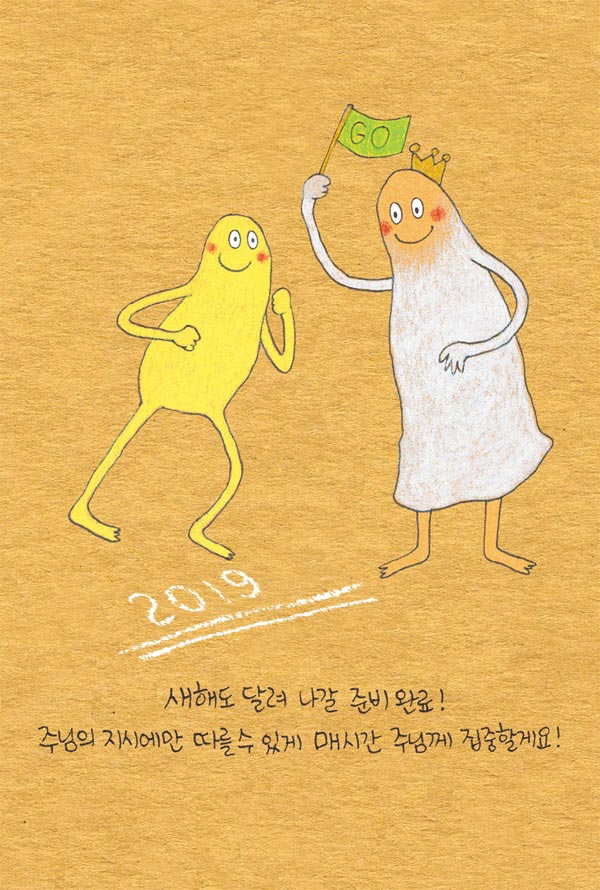 GO
2019
새해도 달려 나갈 준비완료!
주님의 지시에만 따를수 있게 매시간 주님께 집중할게요!